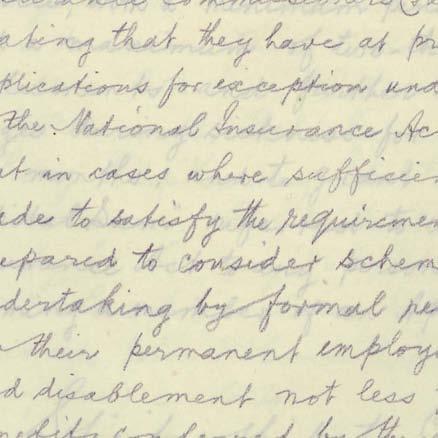 ance commissioners (
ating that they have at pr
plications for exception und
the National Insurance Ac
at in cases where sufficien
ade to satisfy the requiremen
epared to consider schem
dertaking by formal
their permanent employ
d disablement not less
nefits conferred by the